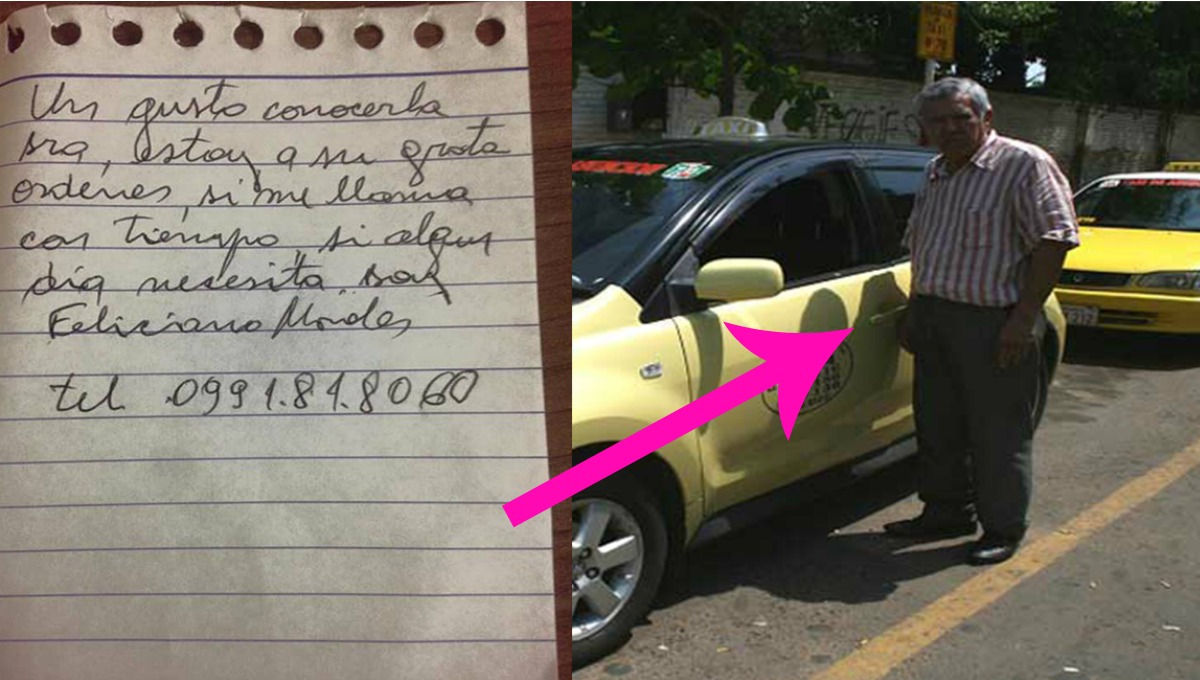 Un gusto conocerla
sra, estoy a su grata
ordenes, si me llama
con tiempo, si algun
dia nesesita, soy
Feliciano
tel 0991.81.8060
TAXI